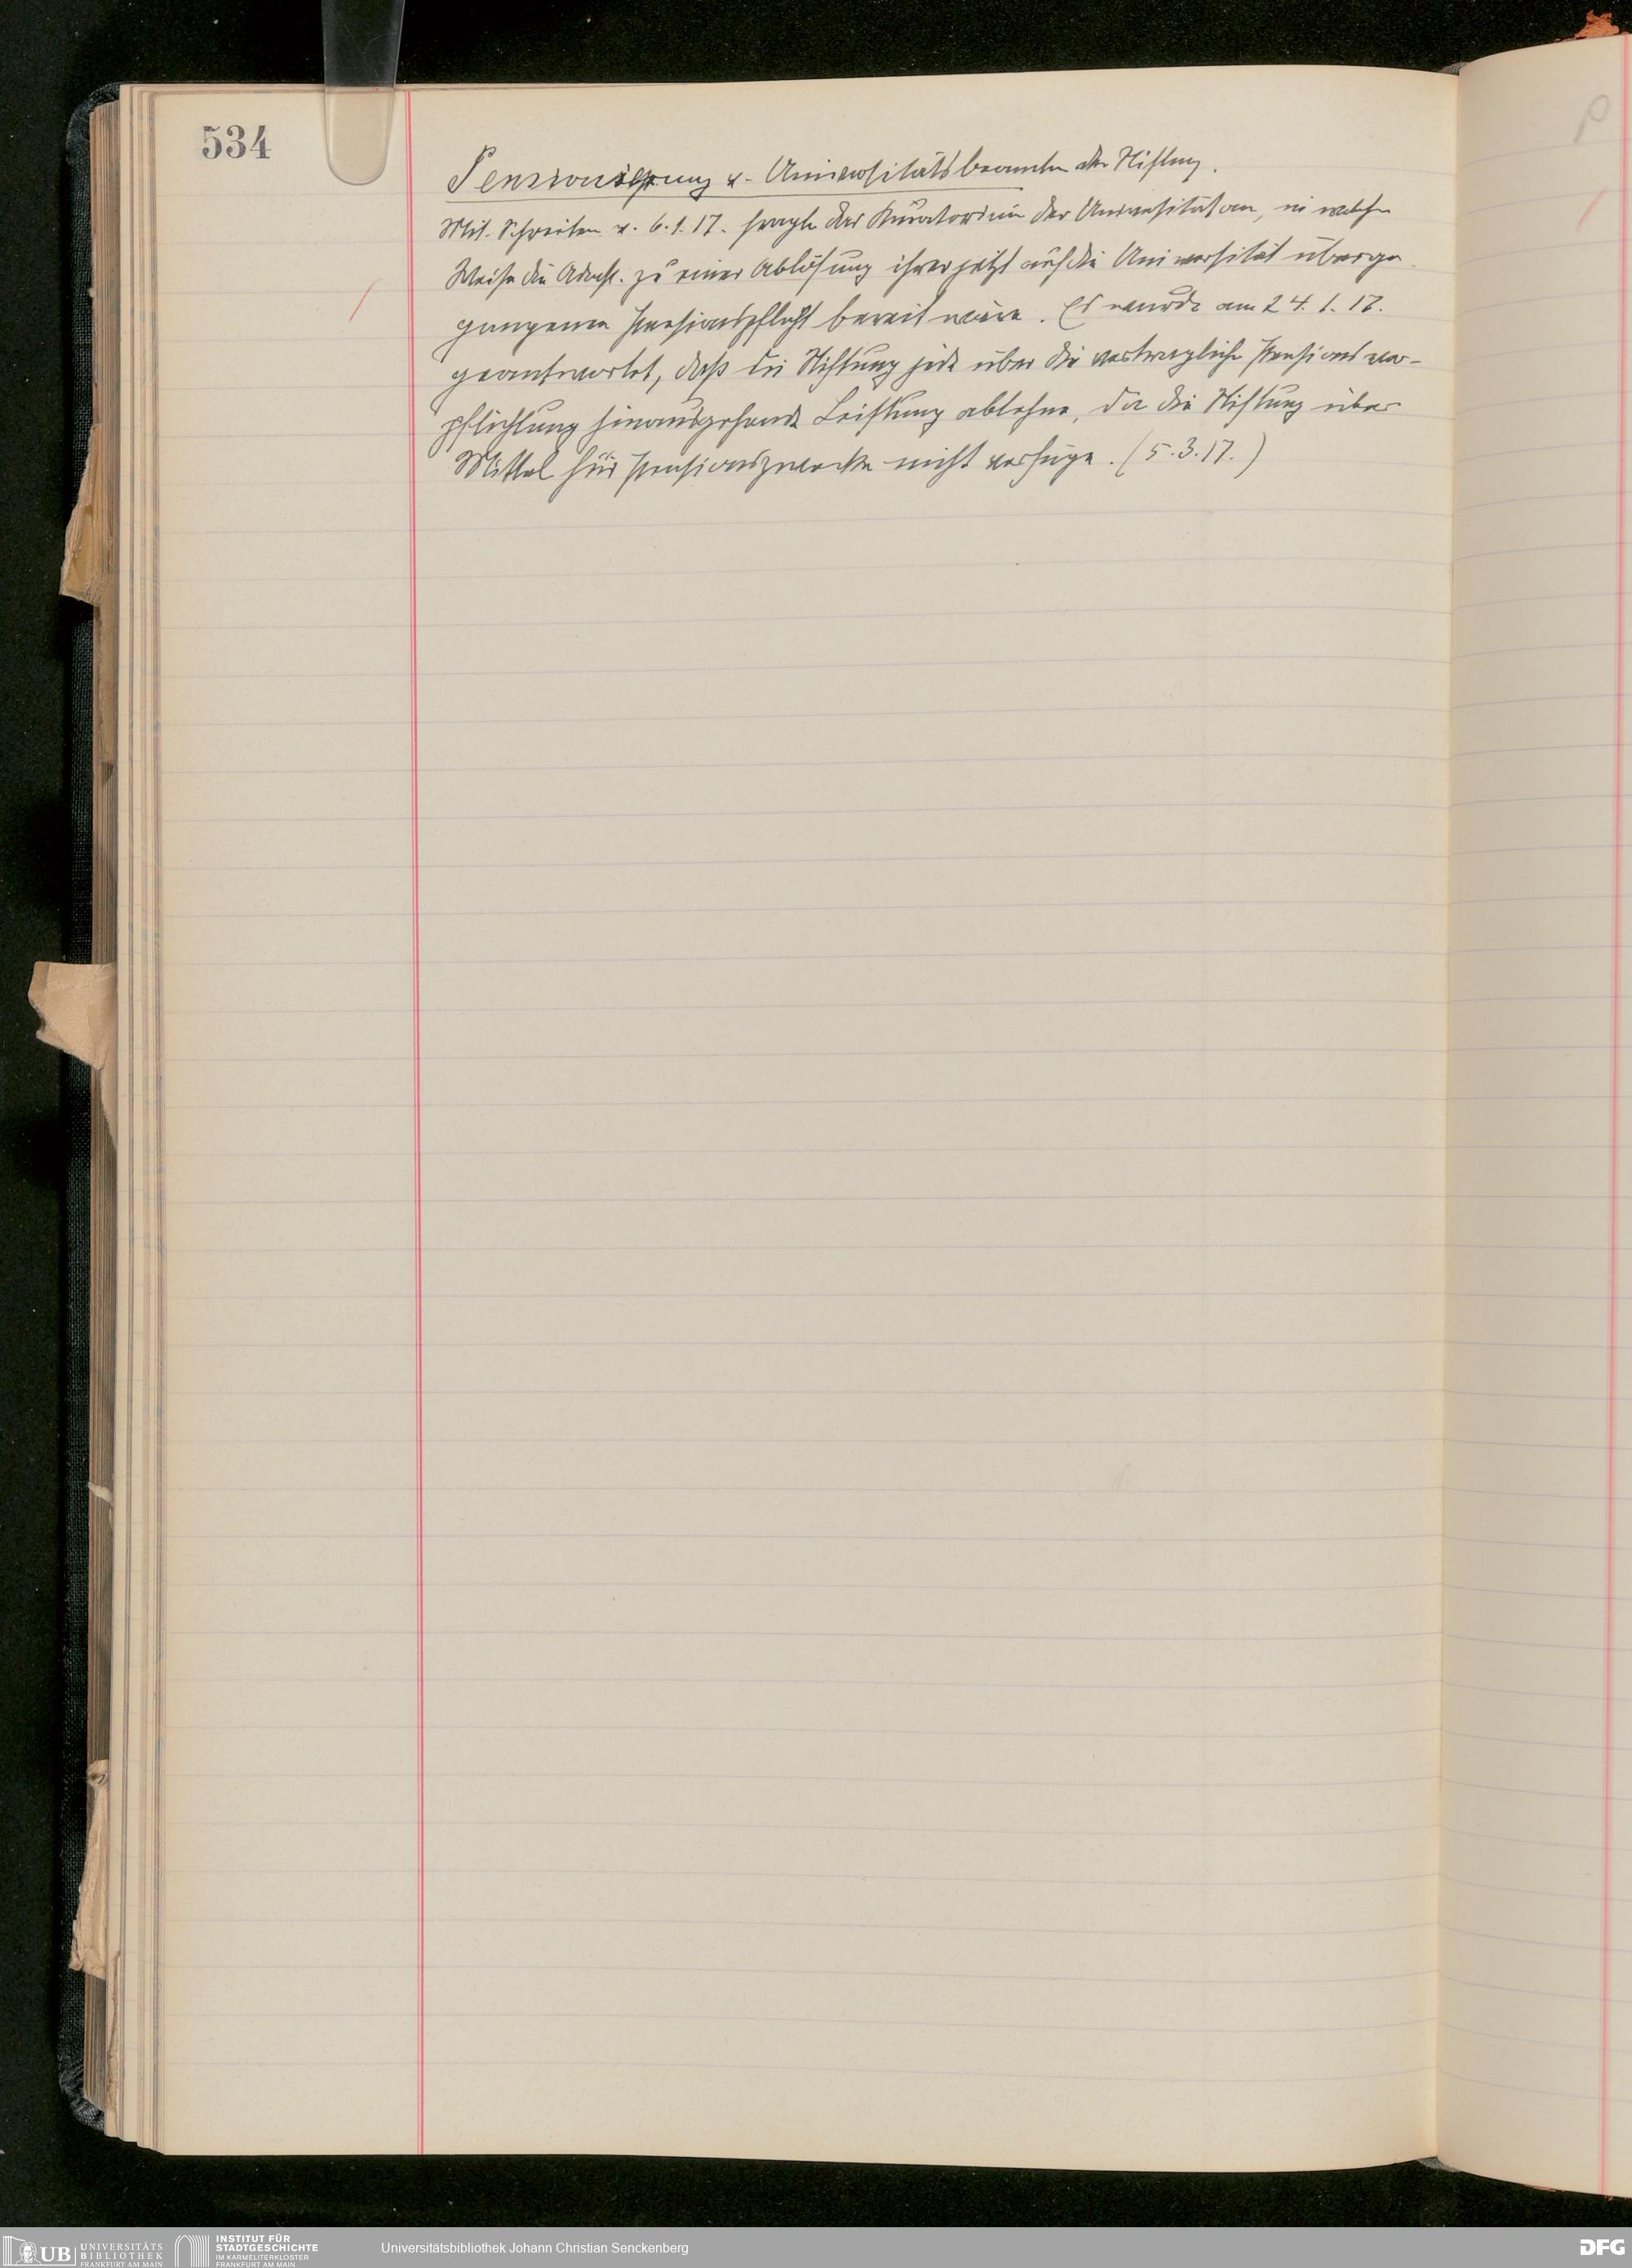 534
Pensionierung v. Universitätsbeamten der Stiftung.
Mit Schreiben v. 6.1.17. fragte das Kuratorium der Universität an, in welcher
Weise die Admst. zu einer Ablösung ihrer jetzt auf die Universität überge-
gangenen Pensionspflicht bereit wäre. Es wurde am 24.1.17.
geantwortet, daß die Stiftung jede über die vertragliche Pensionsver-
pflichtung hinausgehende Leistung ablehne, da die Stiftung über
Mittel für Pensionszwecke nicht verfüge. (5.3.17.)
UB UNIVERSITÄTS
BIBLIOTHEK
FRANKFURT AM MAIN
INSTITUT FÜR
STADTGESCHICHTE
IM KARMELITERKLOSTER
FRANKFURT AM MAIN
Universitätsbibliothek Johann Christian Senckenberg
DFG